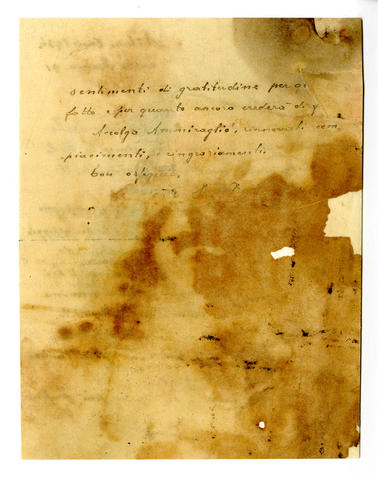 sentimenti di gratitudine per a
fatto e per quanto ancora crederà di
Accolga Ammiraglio, rinnovati com
piacimenti, e ringraziamenti.
Con ossequi.